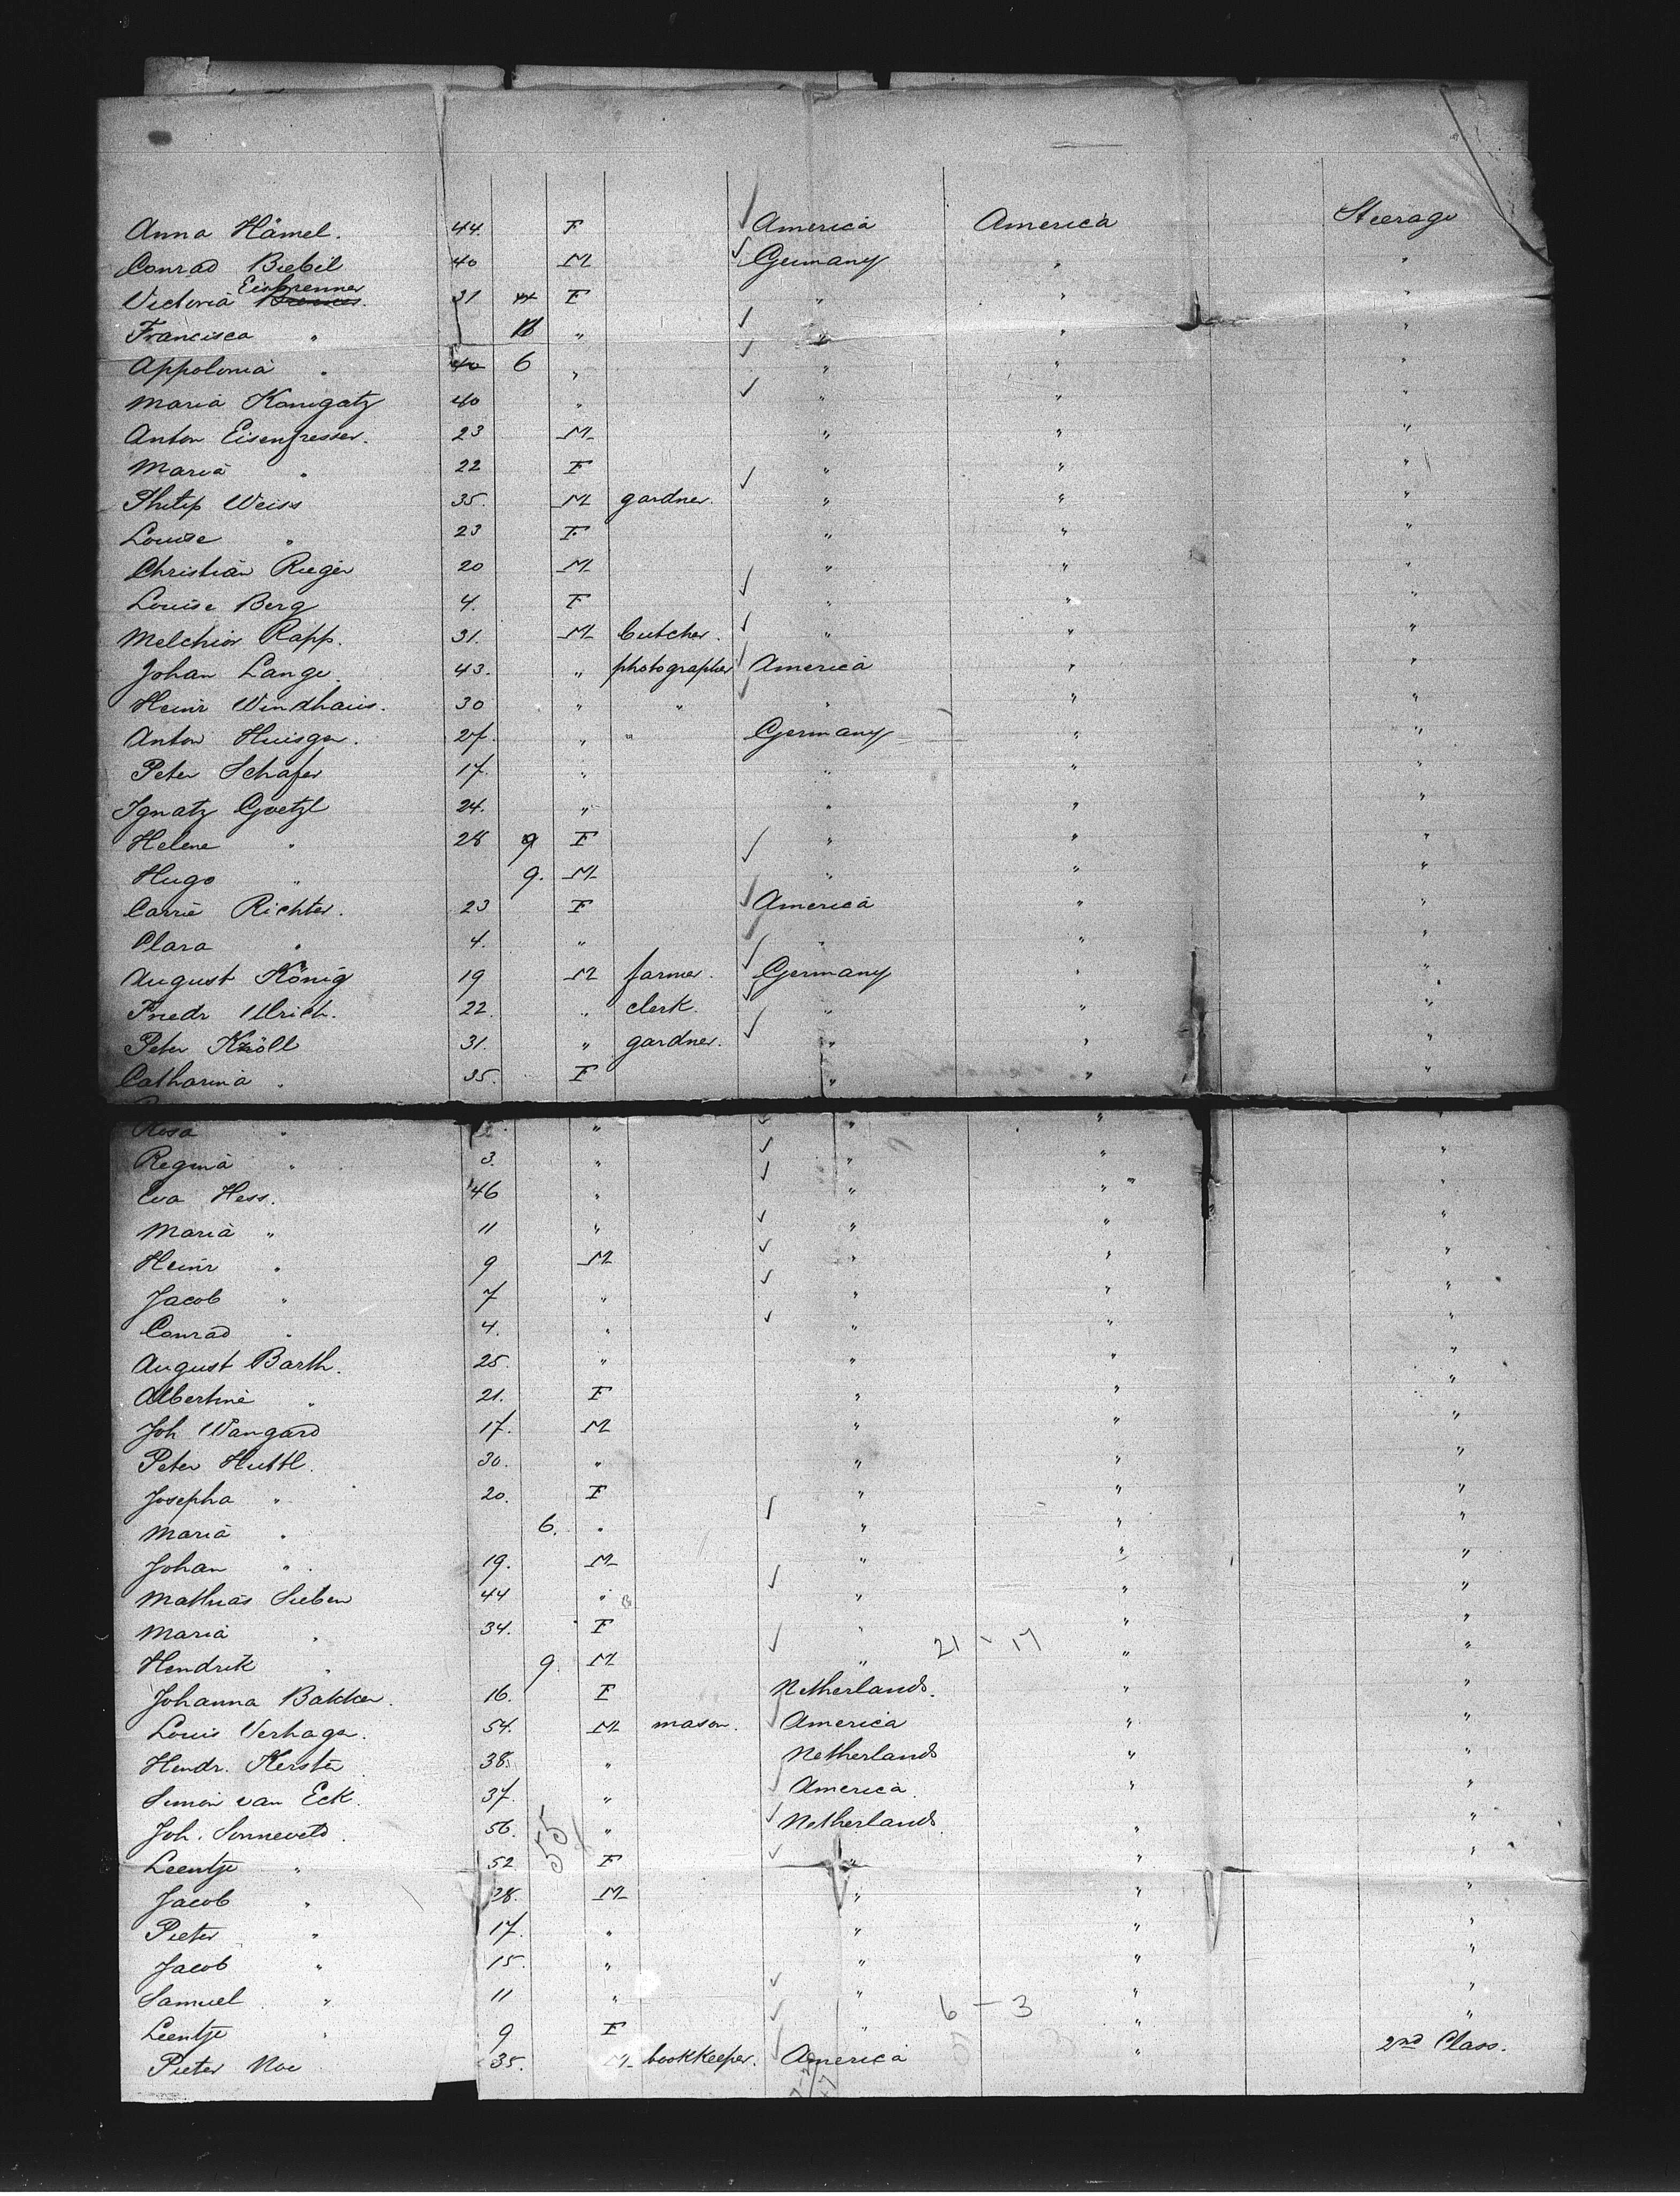 Anna Hämel. 44. F America America Steerage
Conrad Biebel 40 M Germany " "
Eisbrenner
Victoria 31 F " " "
Francisca " 11 " " " "
Appolonia " 40 6 " " " "
Maria Konigatz 40 " " " "
Anton Eisenfresser. 23 M " " "
Maria " 22 F " " "
Philip Weiss 35. M gardner. " " "
Louise " 23 F " " "
Christian Rieger 20 M " " "
Louise Berg 4. F " " "
Melchior Rapp. 31. M butcher. " " "
Johan Lange. 43. " photographer America " "
Heinr Windhaus. 30 " " " " "
Anton Huisgen. 27. " " Germany " "
Peter Schafer 17. " " " "
Ignatz Goetzl 24. " " " "
Helene " 28 9 F " " "
Hugo " 9. M " " "
Carrie Richter. 23 F America " "
Clara " 4. " " " "
August König 19 M farmer. Germany " "
Friedr Ullrich. 22. " clerk. " " "
Peter Kröll 31. " gardner. " " "
Catharina " 35. F " " "
Rosa " 2 " " " "
Regina " 3. " " " "
Eva Hess. 46 " " " "
Maria " 11 " " " "
Heinr " 9 M " " "
Jacob " 7 " " " "
Conrad " 4. " " " "
August Barth. 25. " " " "
Albertine " 21. F " " "
Joh Wangard 17. M " " "
Peter Huttl. 30. " " " "
Josepha " 20. F " " "
Maria " 6. " " " "
Johan " 19. M " " "
Mathias Sieben 44 " " " "
Maria " 34. F " " "
Hendrik " 9. M " 21 - 17 " "
Johanna Bakker. 16. F Netherlands. " "
Louis Verhagen. 54. M mason. America " "
Hendr. Kersten. 38. " Netherlands " "
Simon van Eck. 37. " America. " "
Joh. Sonneveld. 56. " Netherlands. " "
55
Leentje " 52 F " " "
Jacob " 28. M " " "
Pieter " 17. " " " "
Jacob " 15. " " " "
Samuel " 11 " " " "
6 - 3
Leentje " 9 F " " "
Pieter Noe 35. M bookkeeper. America " 2nd Class.